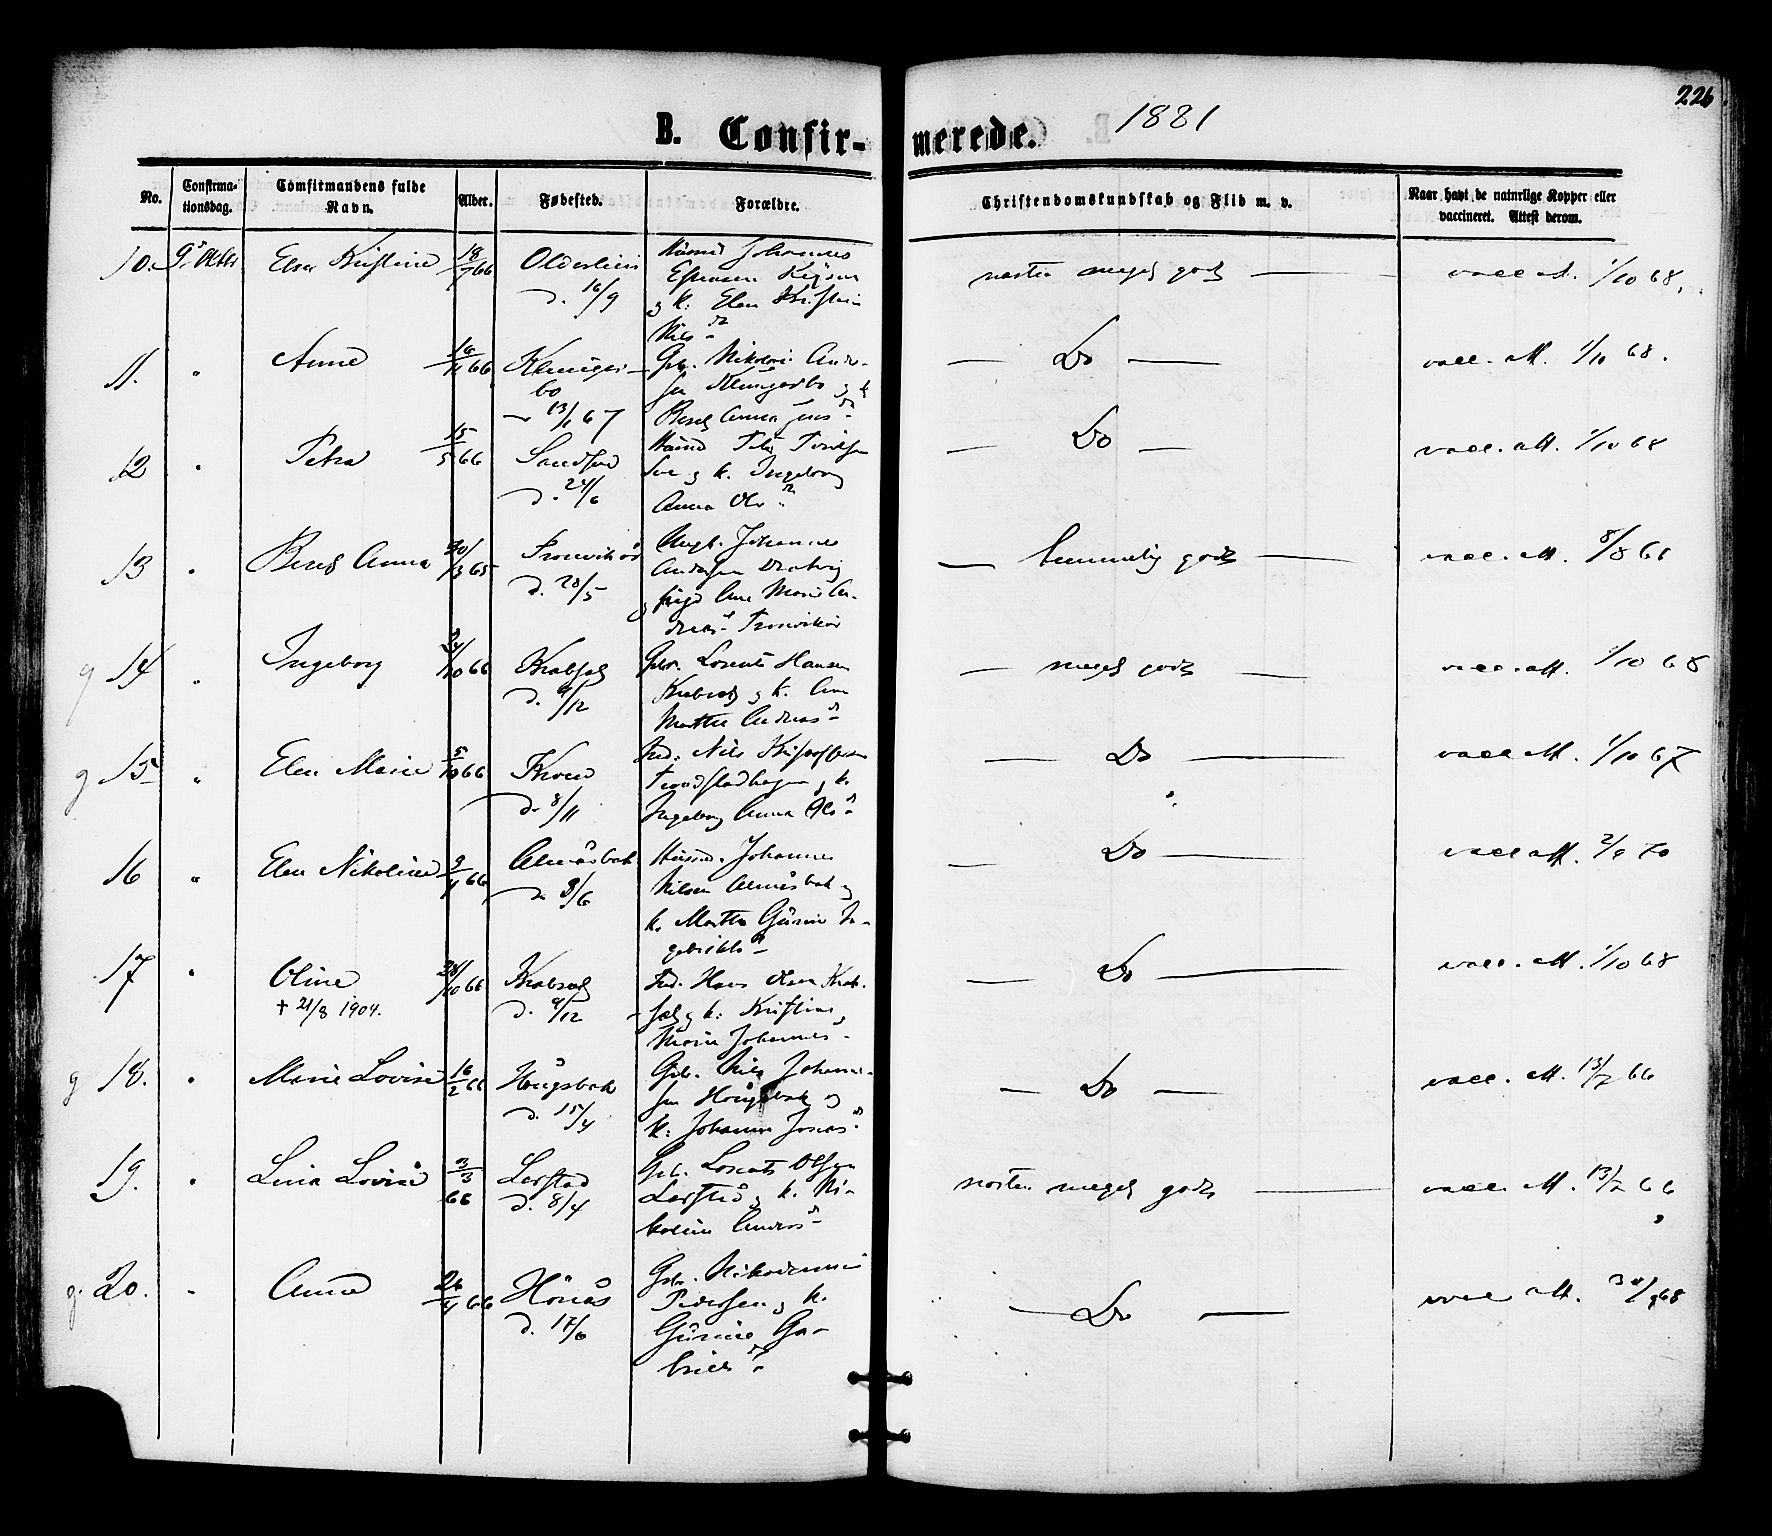 226
1881
B. Confir-merede.
No.
Confirma-
tionsdag.
Comfirmandens fulde
Navn.
Alder.
Fødested.
Forældre.
Christendomskundskab og Flid m. v.
Naar havt de naturlige Kopper eller
vaccineret. Attest derom.
10. 9. Oktbr Elen Kristine 18/7 66
d. 16/9
Husmd Johannes
og k: Elen Kristine
Nils d.
næsten meget godt — vacc. att. 1/10 68.
11. " Anne 16/11 66 Klunger-
bo
13/1 67
Gbr. Nikolai Andr-
sen Klungerbo og k
Beret Anna Jens d.
— Do — vacc. att. 1/10 68.
12 " Petra 15/5 66 Sandsund
d. 24/6
Husmd Peter
og k. Ingeborg
Anna Ols d.
— Do — vacc. att. 1/10 68
13 " Beret Anna 30/3 65
d. 28/5
Ungk. Johannes
Andersen
pige Ane Marie An-
dreas d.
— temmelig godt — vacc. att. 8/8 66
g 14 " Ingeborg 24/10 66 Krabsæl
d. 9/12
Gbr. Lorents Hansen
Krabsæl og k. Ane
Martha Andreas d.
— meget godt — vacc. att. 1/10 68
g 15 " Elen Marie 5/10 66
d. 8/11
Ind. Nils Kristoffersen
og k.
Ingeborg Anna Ols d.
— Do — vacc att. 1/10 67
16 " Elen Nikoline 9/4 66 Almåsbak
d. 3/6
Husmd. Johannes
Nilsen Almåsbak og
k. Martha Gurine In-
gebrikts d.
— Do — vacc att. 2/9 70
17 " Oline 28/10 66 Krabsæl
† 21/8 1904.
d. 9/12
Ind. Hans Olsen Krab-
sæl og k: Kristine
Marie Johannes d.
— Do — vacc. att. 1/10 68
g 18. " Marie Lovise 16/2 66 Haugsbak
d. 15/4
Gbr. Nils Johanne-
sen Haugsbak og
k: Johanna Jonas d.
— Do — vacc. att. 13/7 66
19. " Lina Lovise 3/3
66
Lerstad
d. 8/4
Gbr. Lorents Olsen
Lerstad og k. Ni-
koline Andreas d.
næsten meget godt — vacc att. 13/7 66
g. 20. " Anne 26/4 66 Hönås
d. 17/6
Gbr. Nikodemus
Pedersen og k.
Gurine Ga-
briels d.
— Do — vacc att. 30/9 68